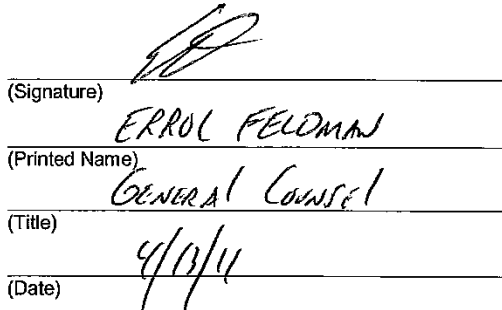 (Signature)
ERROL FELDMAN
(Printed Name)
GENERAL COUNSEL
(Title)
4/13/11
(Date)